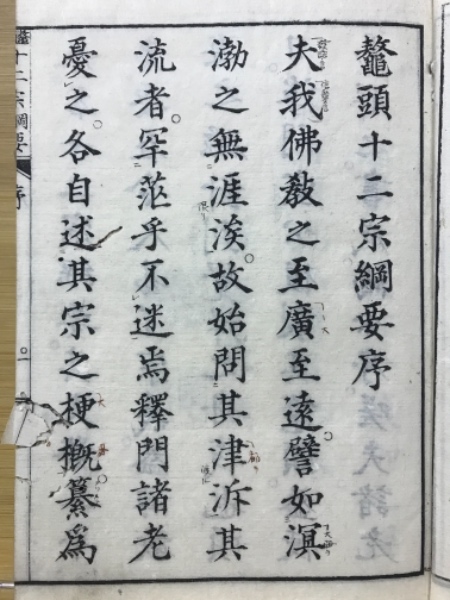 鼇頭十二宗綱要序
夫我佛教之至廣至遠譬如溟
渤之無涯涘故始問其津泝其
流者罕茫乎不迷焉釋門諸老
憂之各自述其宗之梗概纂爲
十二宗綱要
序
一